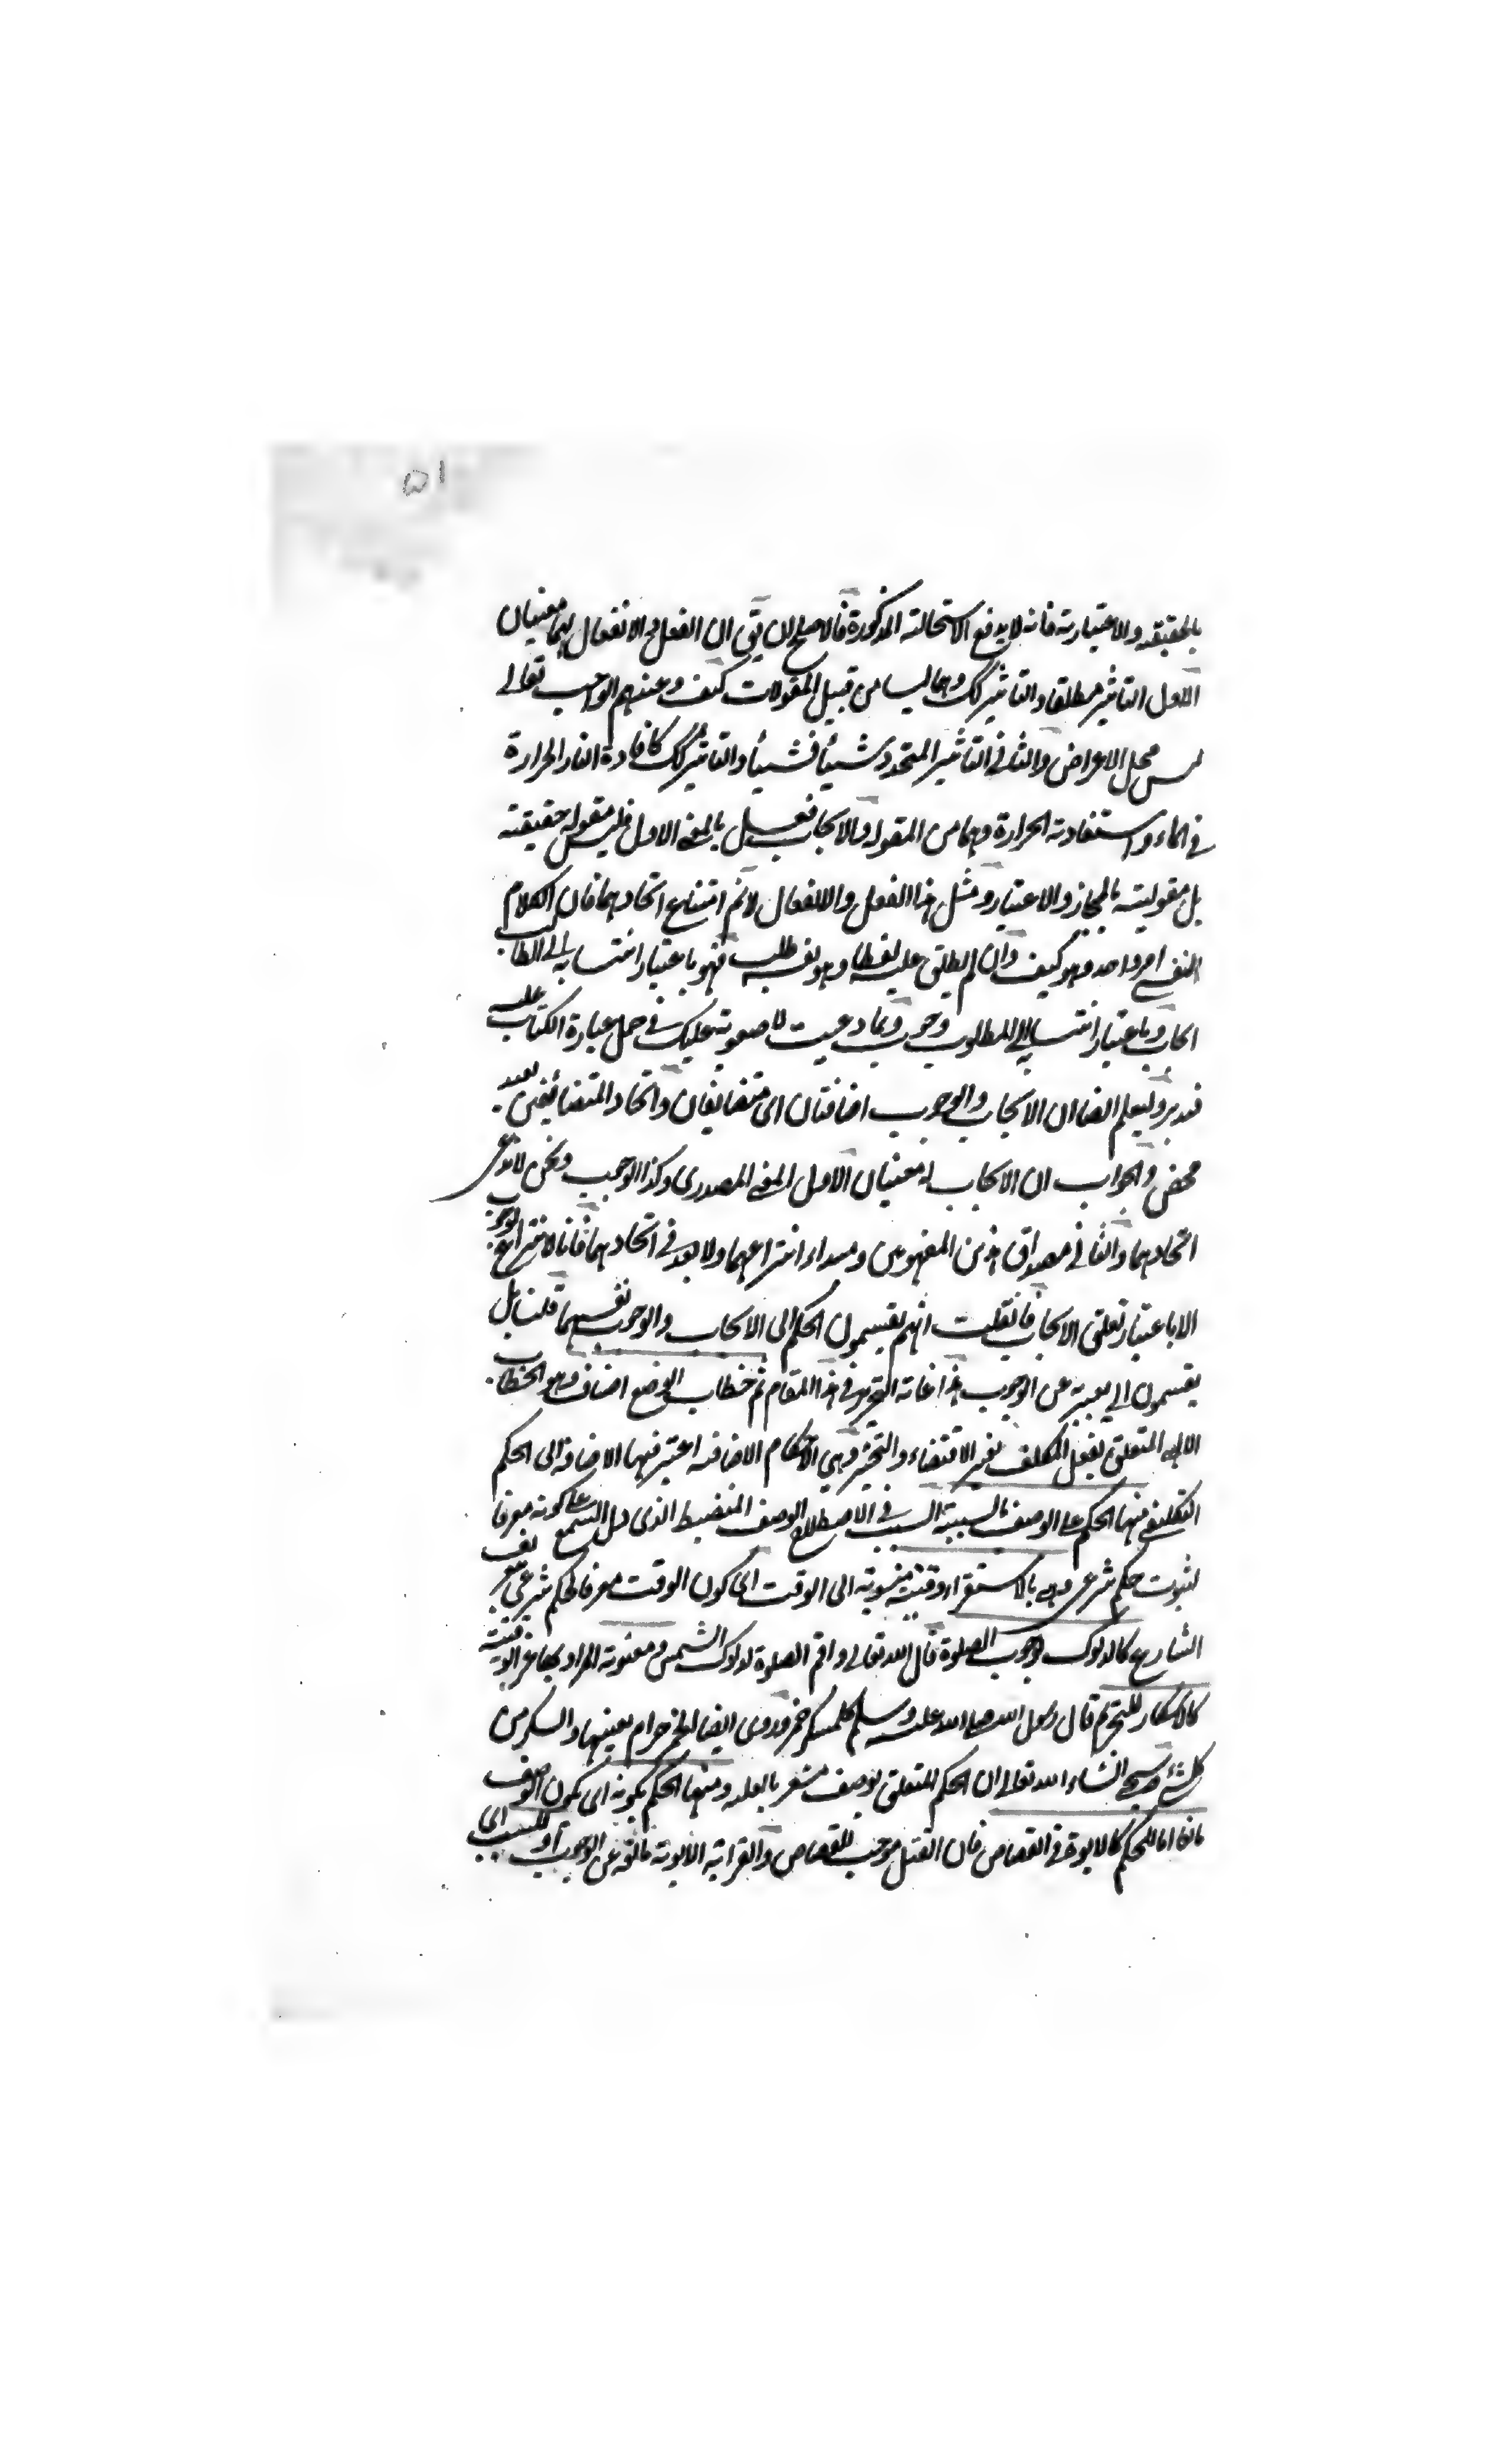 ٥١
بالحقيقة والاعتبارية فانه لا يدفع الاستحالة المذكورة فالاصلح ان يق ان الفعل والانفعال لهما معنيان
الاول التاثير مطلقا والتاثر كك وهما ليسا من قبيل المقولات كيف وعندهم الواجب تعالى
ليس محل الاعراض والثاني التاثير المتجدد شيئا فشيئا والتاثر كك كافادة النار الحرارة
في الماء واستفادته الحرارة وهما من المقولة والايجاب فعل بالمعنى الاول فليس مقولة حقيقة
بل مقوليته بالمجاز والاعتبار ومثل هذا الفعل والانفعال لا نم امتناع اتحادهما فان الكلام
النفسي امر واحد وهو كيف وان لم يطلق عليه لفظا وهو نفسه طلب فهو باعتبار انتسابه الى الطالب
ايجاب وباعتبار انتسابه الى المطلوب وجوب وبما دعيت لا صعوبة عليك في حمل عبارة الكتاب عليه
فتدبر وليعلم ايضا ان الايجاب والوجوب اضافتان اى متضايفان واتحاد المتضائفين بعيد
محض والجواب ان الايجاب له معنيان الاول المعنى المصدرى وكذا الوجوب ونحن لا ندعى
اتحادهما والثاني مصداق هذين المفهومين ومبداء انتزاعهما ولا بعد في اتحادهما فانا لا ننتزع الوجوب
الا باعتبار تعلق الايجاب فانقلت انهم يقسمون الحكم الى الايجاب والوجوب نفسهما قلنا بل
يقسمون الى يعبر به عن الوجوب هذا غاية التحرير في هذا المقام ثم خطاب الوضع اضاف وهو الخطاب
الالهى المتعلق بفعل المكلف بغير الاقتضاء والتخير وهي الاحكام الاضافية اعتبر فيها الاضافة الى الحكم
التكليفي منها الحكم على الوصف بالسببية السبب في الاصطلاح الوصف المنضبط الذى دل السمع على كونه معرفا
لثبوت حكم شرعي وهى بالاستقراء وقتية منسوبة الى الوقت اى كون الوقت معرفا لحكم شرعي بتعريف
الشارع كالدلوك لوجوب الصلوة قال الله تعالى واقم الصلوة لدلوك الشمس ومعنوية المراد بها غير الوقتية
كالاسكار للتحريم قال رسول الله صلى الله عليه وسلم كل مسكر خمر وروى ايضا الخمر حرام بعينها والسكر من
كل شئ وسيجئ انشاء الله تعالى ان الحكم المتعلق بوصف مشعر بالعلية ومنها الحكم بكونه اى بكون الوصف
مانعا اما للحكم كالابوة في القصاص فان القتل موجب للقصاص والقرابة الابوية مانعة عن الوجوب او للسبب اى